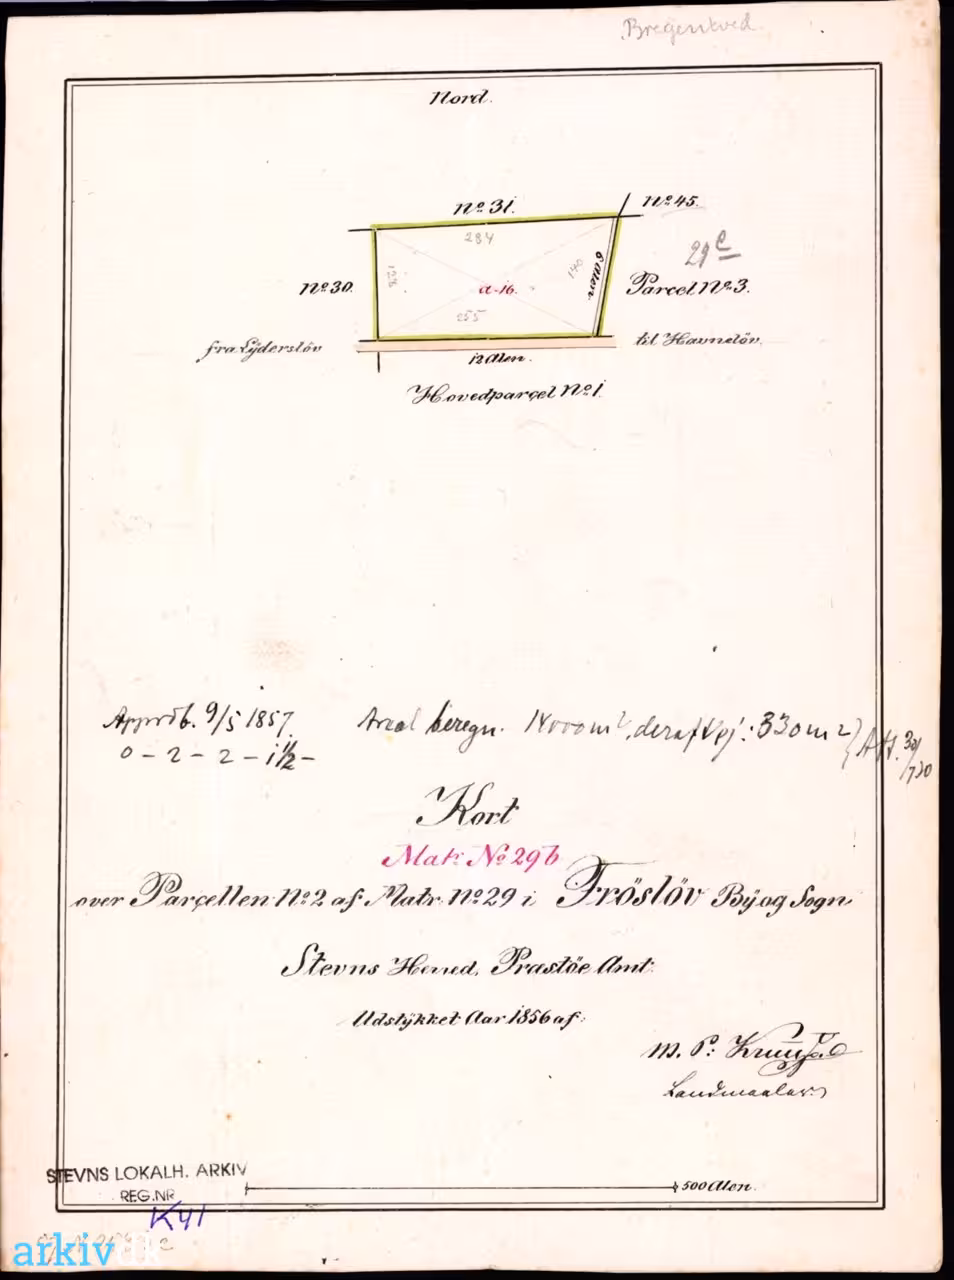 Bregentved.
Nord.
No 31.
No 45.
284
29e
No 30.
128
a-16.
140
6 Alen.
Parcel No 3.
255
fra Lÿderslöv
til Havnelöv.
12 Alen.
Hovedparçel No 1.
Approb. 9/5 1857.
Areal beregn. 14000 m2, deraf Vej: 330 m2
0-2-2-1 1/2-
Kort
Matr No 29b
over Parçellen No 2 af Matr. No 29 i Fröslöv Bÿ og Sogn
Stevns Herred, Præstöe Amt.
Udstÿkket Aar 1856 af:
M. P:
Landmaaler.
STEVNS LOKALH. ARKIV
REG.NR
K41
500 Alen.
arkiv.dk